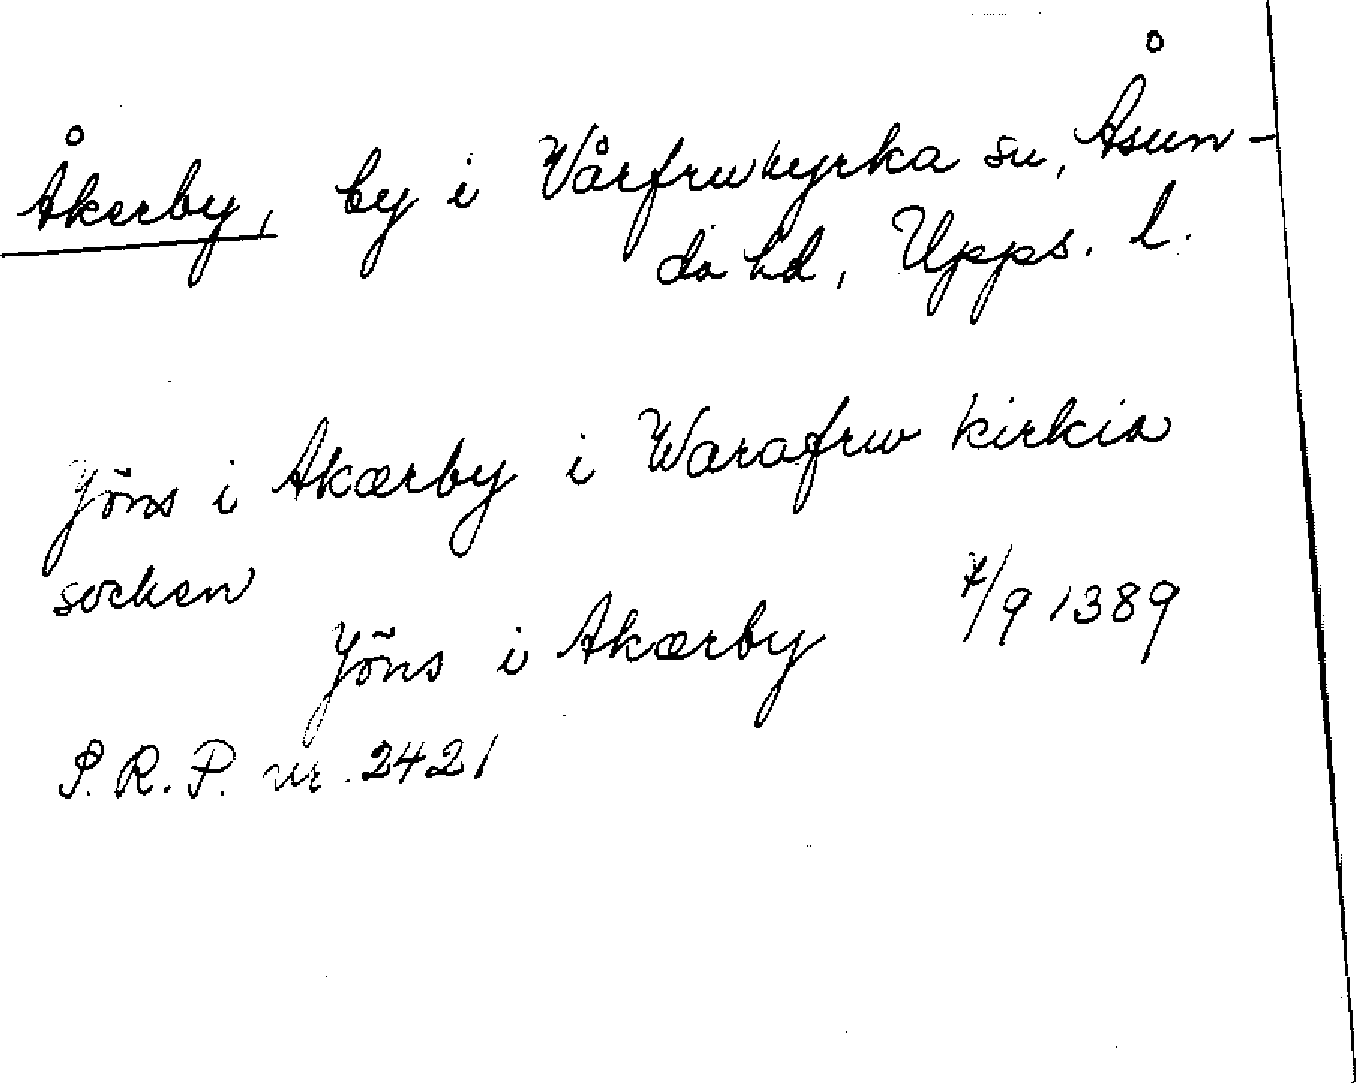 Åkerby, by i Vårfrukyrka sn, Åsun-
da hd, Upps. l.
Jöns i Akærby i Warafrw kirkia
socken
Jöns i Akærby 7/9 1389
S. R. P. nr. 2421